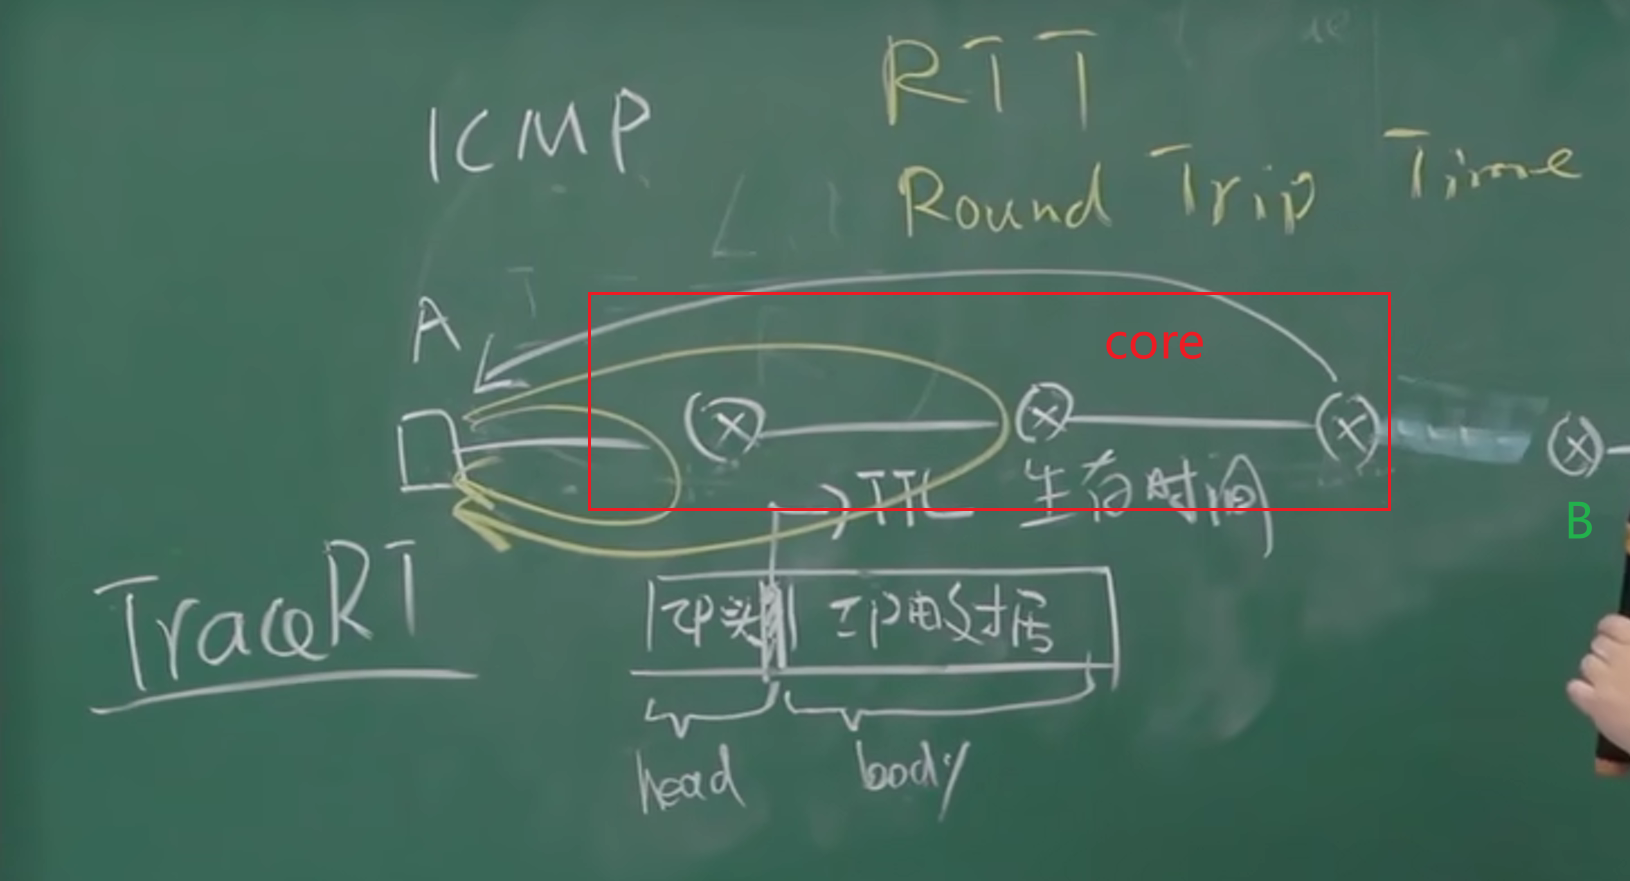 RTT
ICMP
Round Trip Time
A
core
TTL 生存时间
B
TraceRT
IP头
IP数据
head
body